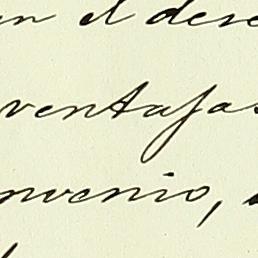 en el dese
ventajas
nvenio,